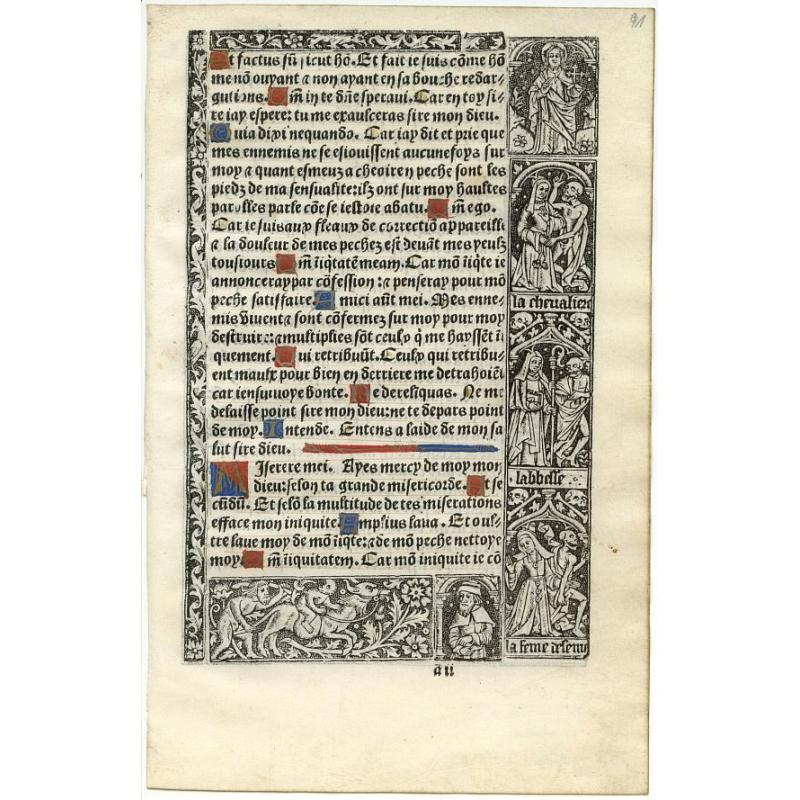 91
Et factus sũ sicut hõ. Et fait ie suis cõme hõ
me nõ ouyant & non ayant en sa bouche redar-
gutions. Qm̃ in te dñe speraui. Car en toy si-
re iay espere: tu me exaulceras sire mon dieu.
Quia dixi nequando. Car iay dit et prie que
mes ennemis ne se esiouissent aucunefoys sur
moy & quant esmeuz a cheoir en peche sont les
piedz de ma sensualite: ilz ont sur moy haultes
parolles parle cõe se iestoie abatu. Qm̃ ego.
Car ie suis aux fleaux de correctiõ appareille
& la douleur de mes pechez est deuãt mes yeulx
tousiours Qm̃ iiq̃tatẽ meam. Car mõ iiq̃te ie
annonceray par cõfession: & penseray pour mõ
peche satiffaire. Inimici aũt mei. Mes enne-
mis viuent & sont cõfermez sur moy pour moy
destruire: & multiplies sõt ceulx q̃ me hayssẽt ĩi
quement. Qui retribuũt. Ceulx qui retribu-
ent maulx pour bien en derriere me detrahoiẽt
car iensuiuoye bonte. Ne derelĩquas. Ne me
delaisse point sire mon dieu: ne te depars point
de moy. Intende. Entens a laide de mon sa
lut sire dieu.
Miserere mei. Ayes mercy de moy mon
dieu: selon ta grande misericorde. Et se
cũdũ. Et selõ la multitude de tes miserations
efface mon iniquite. Amplius laua. Et oul-
tre laue moy de mõ iiq̃te: & de mõ peche nettoye
moy. Qm̃ iiquitatem. Car mõ iniquite ie cõ
la cheualiere
labbesse
la feme descuy
a ii